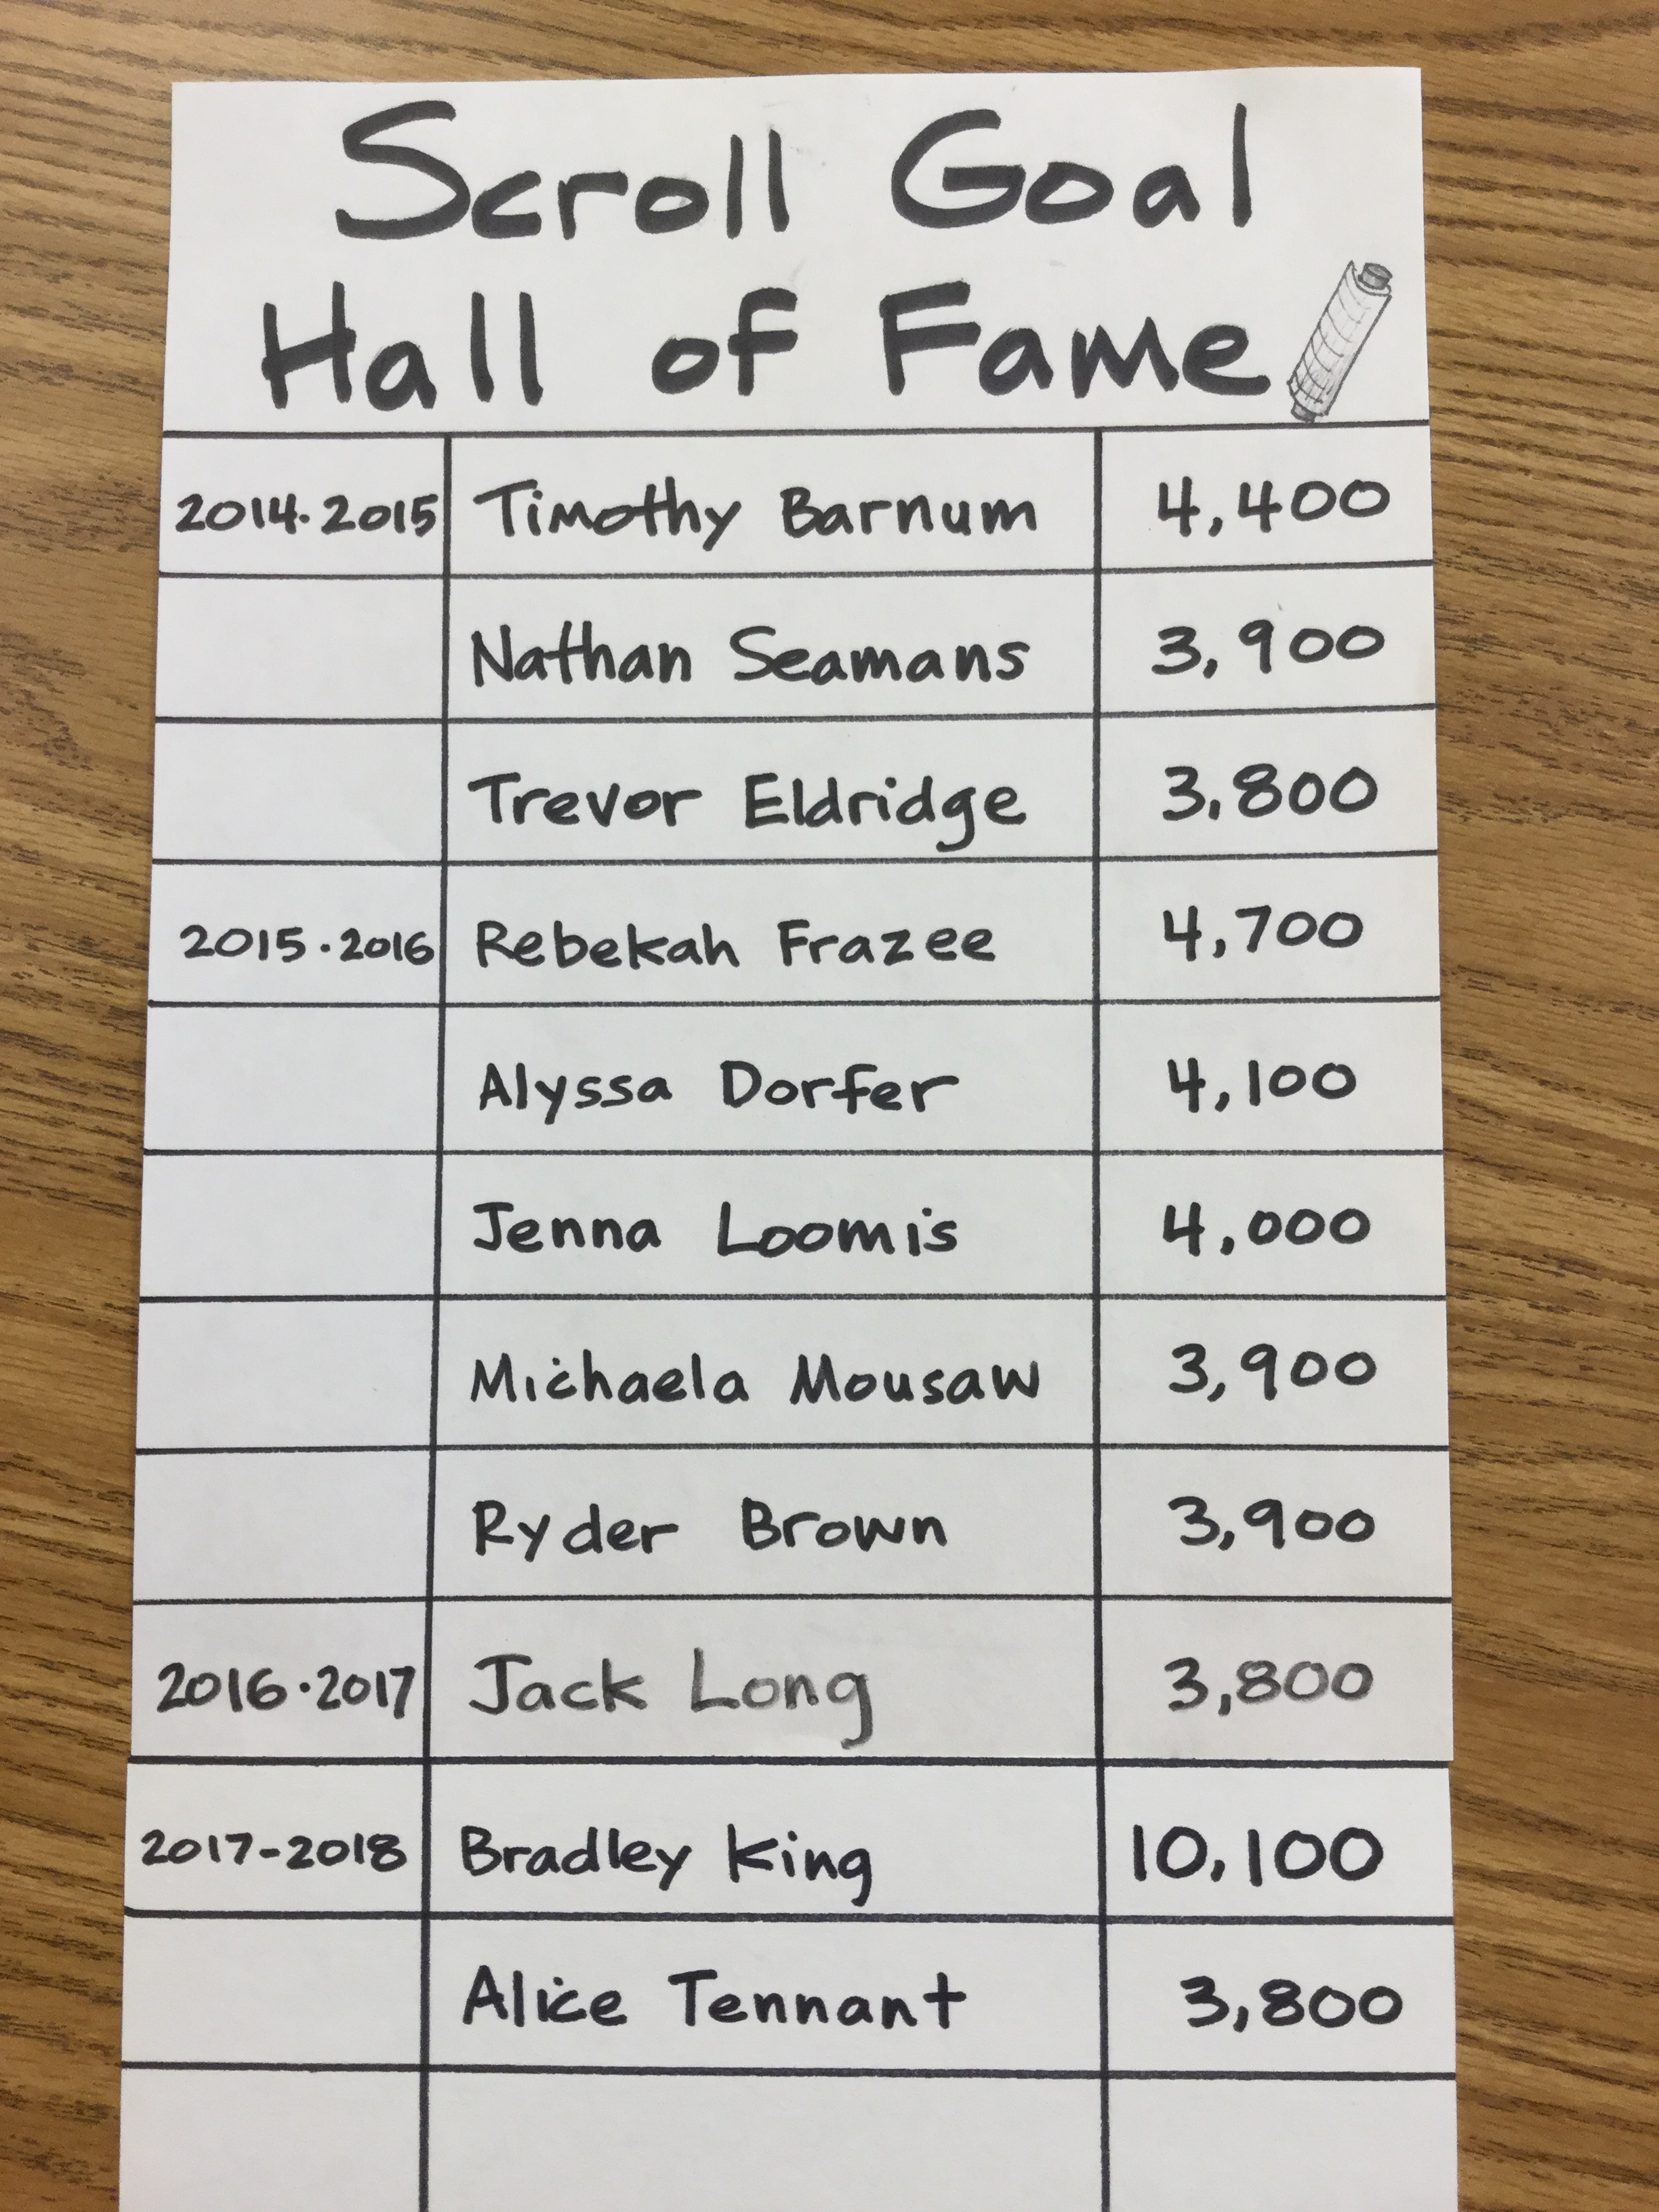 Scroll Goal
Hall of Fame
2014·2015 Timothy Barnum 4,400
Nathan Seamans 3,900
Trevor Eldridge 3,800
2015·2016 Rebekah Frazee 4,700
Alyssa Dorfer 4,100
Jenna Loomis 4,000
Michaela Mousaw 3,900
Ryder Brown 3,900
2016·2017 Jack Long 3,800
2017-2018 Bradley King 10,100
Alice Tennant 3,800